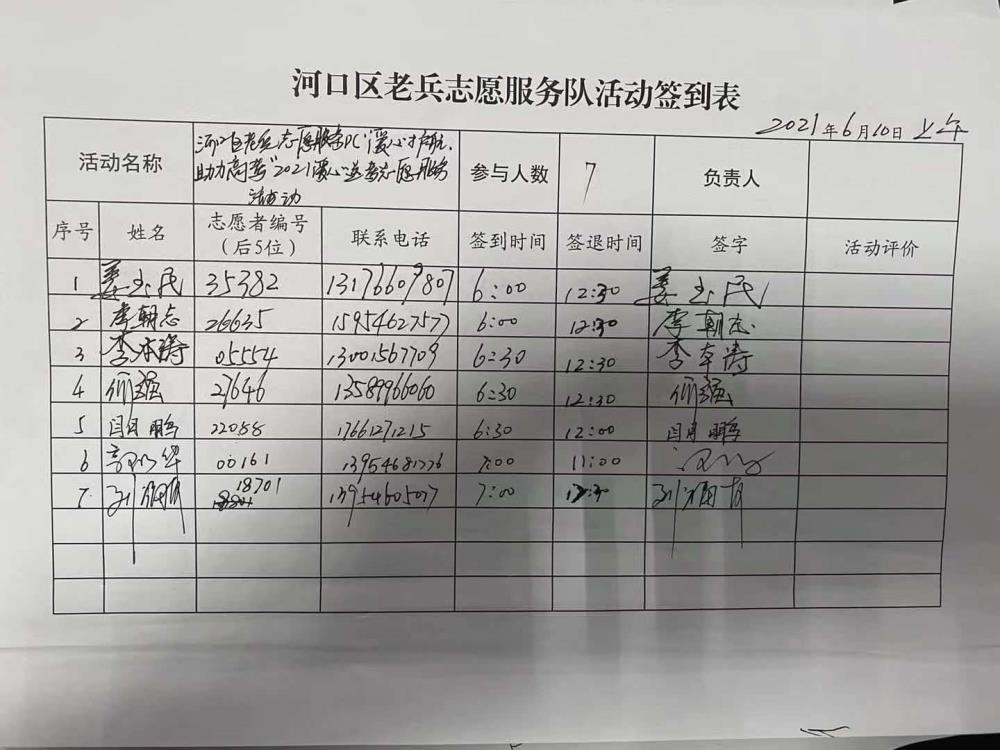 河口区老兵志愿服务队活动签到表
2021年6月10日上午
活动名称 河口区老兵志愿服务队"爱心护航,
助力高考"2021爱心送考志愿服务
活动
参与人数 7 负责人
序号 姓名 志愿者编号（后5位） 联系电话 签到时间 签退时间 签字 活动评价
1 姜玉民 35382 13176609807 6:00 12:30 姜玉民
2 李朝志 26635 15954627577 6:00 12:30 李朝志
3 李本涛 05554 13001567709 6:30 12:30 李本涛
4 27646 13589966060 6:30 12:30
5 闫月鹏 22088 17661271215 6:30 12:00 闫月鹏
6 00161 13954681776 7:00 11:00
7 刘 18701 13954605077 7:00 刘